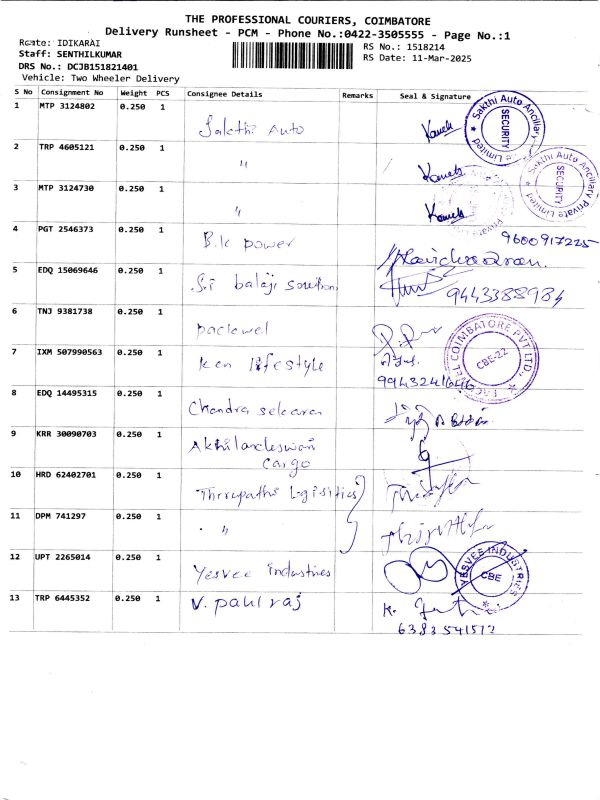 THE PROFESSIONAL COURIERS, COIMBATORE
Delivery Runsheet - PCM - Phone No.:0422-3505555 - Page No.:1
Route: IDIKARAI
RS No.: 1518214
Staff: SENTHILKUMAR
RS Date: 11-Mar-2025
DRS No.: DCJB151821401
Vehicle: Two Wheeler Delivery
S No Consignment No Weight PCS Consignee Details Remarks Seal & Signature
1 MTP 3124802 0.250 1 Sakthi Auto
Sakthi Auto Ancillary Private Limited SECURITY
2 TRP 4605121 0.250 1 "
Sakthi Auto Ancillary Private Limited SECURITY
3 MTP 3124730 0.250 1 "
4 PGT 2546373 0.250 1 B.K power 9600917225
5 EDQ 15069646 0.250 1 Sri balaji 9443388984
6 TNJ 9381738 0.250 1 packwel
COIMBATORE PVT LTD., CBE-22
7 IXM 507990563 0.250 1 Ken lifestyle
8 EDQ 14495315 0.250 1 Chandra sekaran
9 KRR 30090703 0.250 1 Akhilandeswari
Cargo
10 HRD 62402701 0.250 1 Thirupathi Logisitics
11 DPM 741297 0.250 1 "
12 UPT 2265014 0.250 1 Yesvee industries
INDUSTRIES CBE
13 TRP 6445352 0.250 1 V. paul raj K.